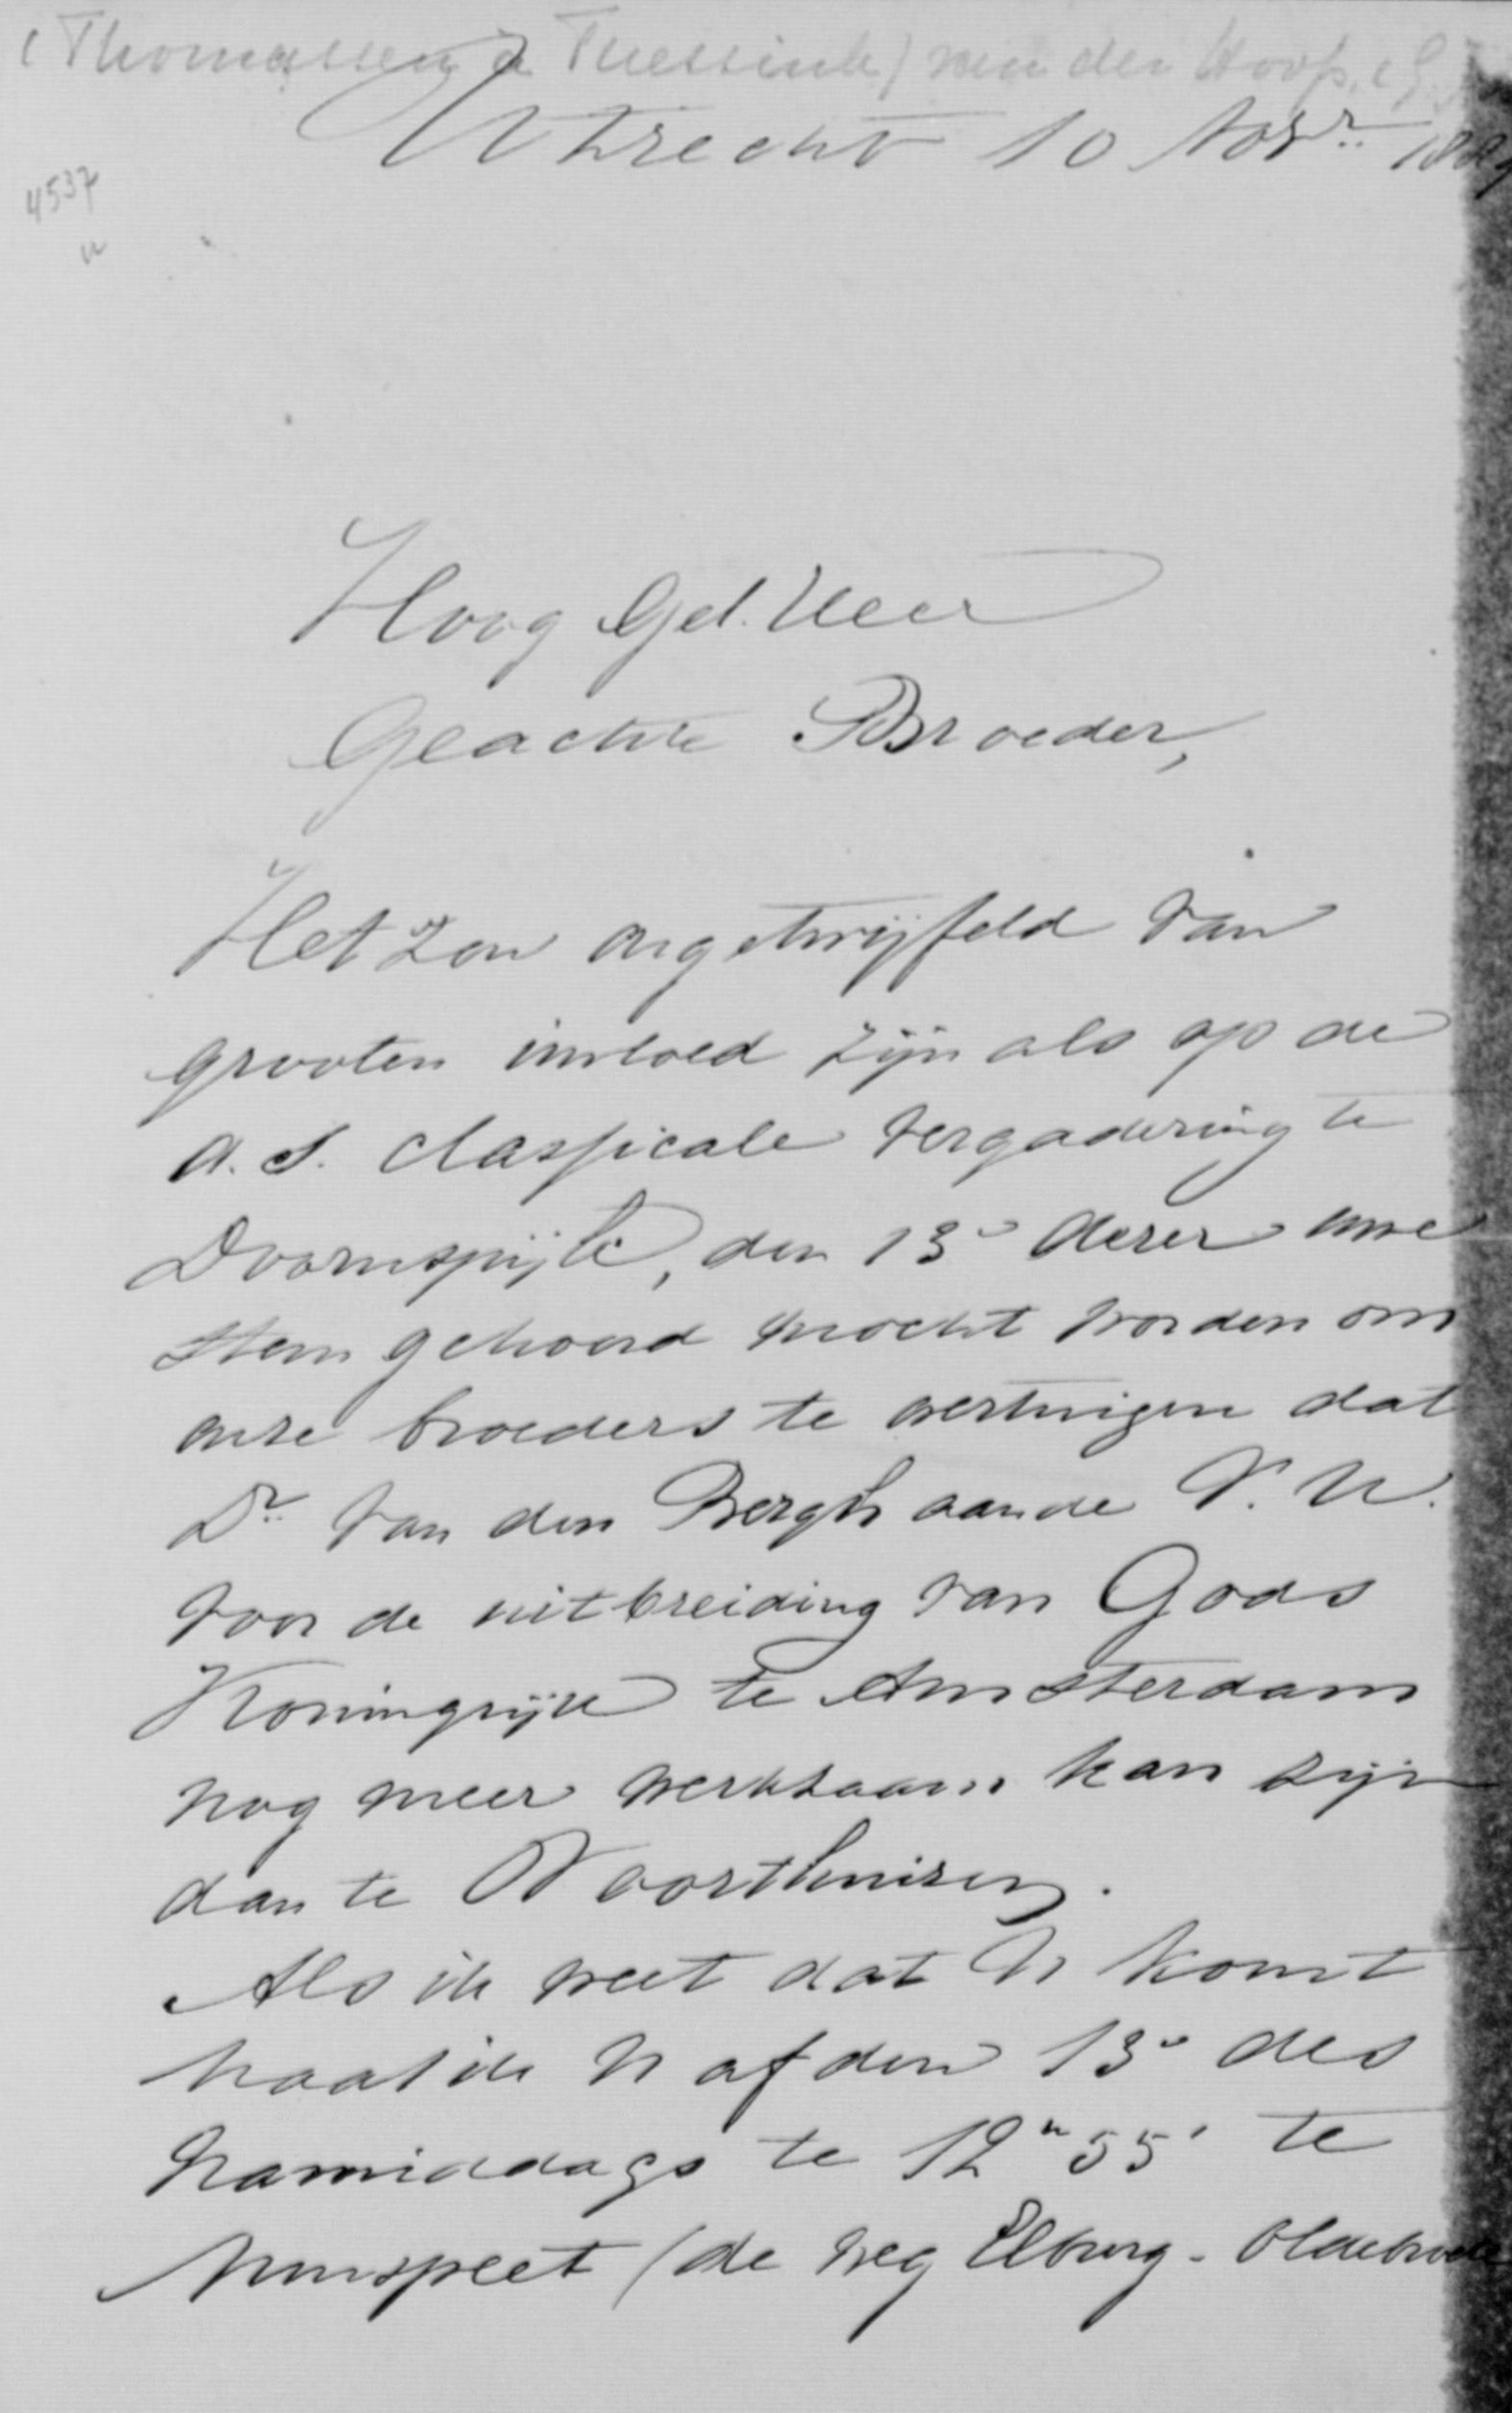 (Thomassen à Thuessink) van der Hoop,
Utrecht 10 Novr. 1889
4537
Hoog Gel. Heer
Geachte Broeder,
Het zou ongetwijfeld van
grooten invloed zijn als op de
a. s. classicale vergadering te
Doornspijk, den 13e dezer uwe
stem gehoord mocht worden om
onze broeders te overtuigen dat
Dr. van den Bergh aan de V. U.
voor de uitbreiding van Gods
Koningrijk te Amsterdam
nog meer werkzaam kan zijn
dan te Voorthuizen.
Als ik weet dat U komt
haal ik U af den 13e des
namiddags te 12u 55' te
Nunspeet (de weg Elburg - Oldebroek